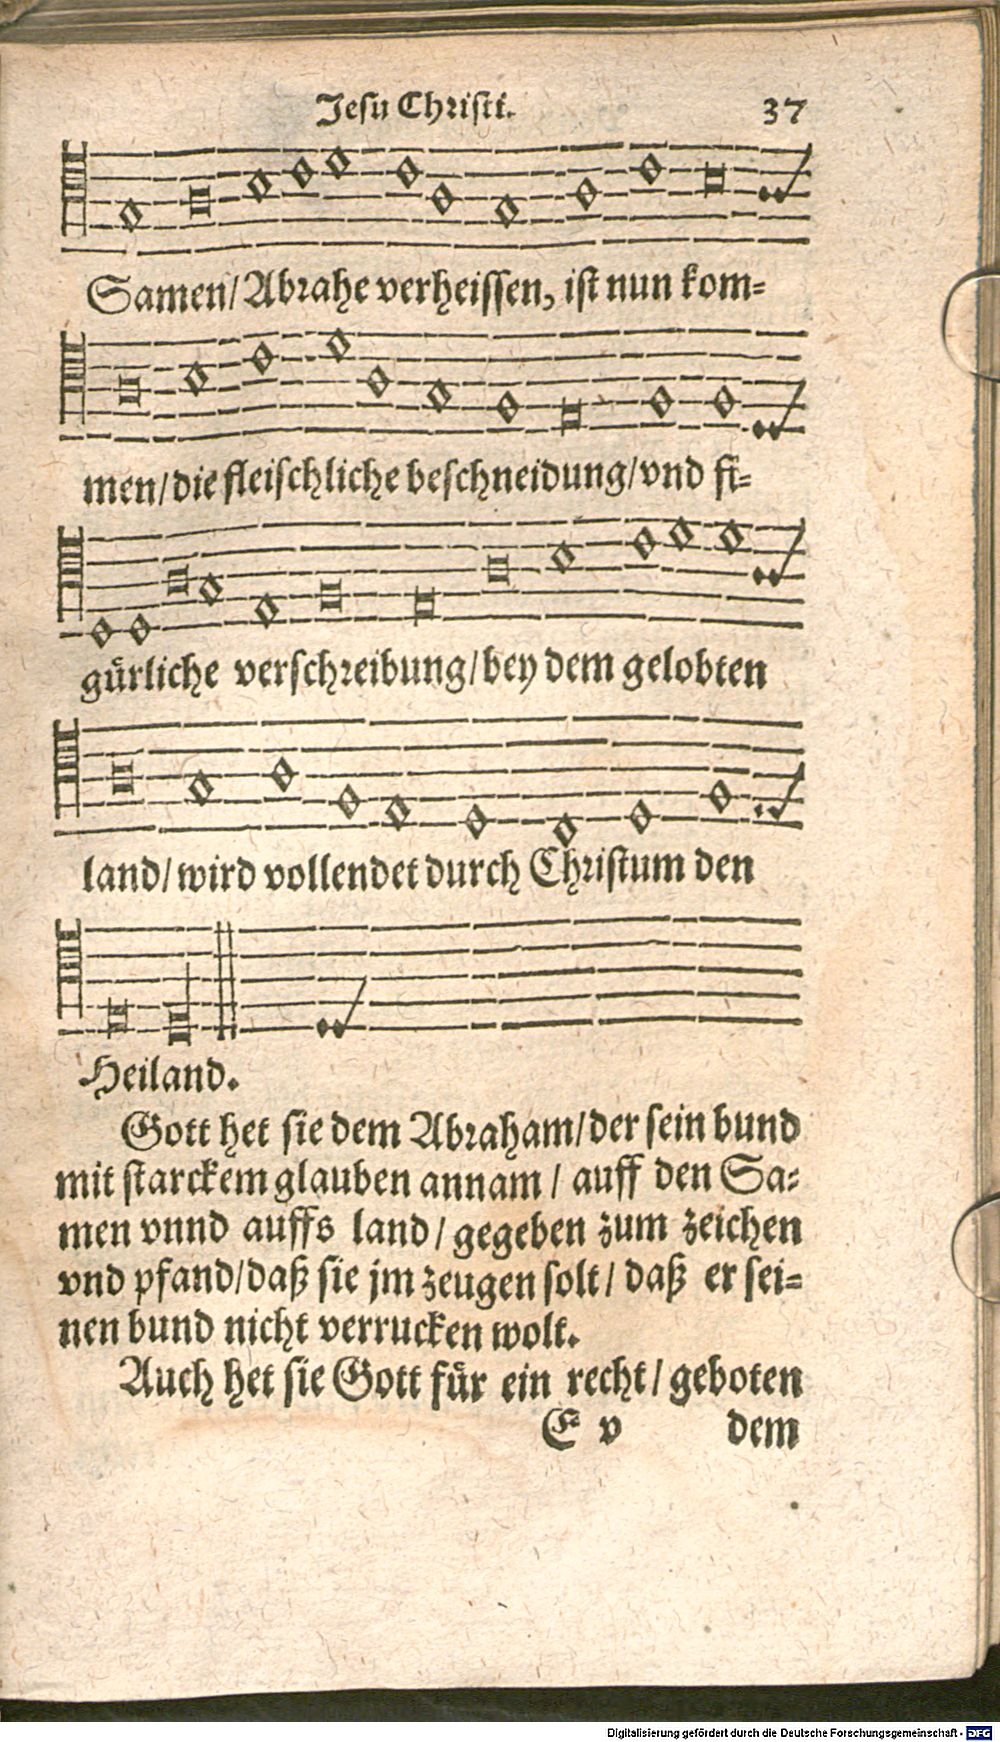 Jesu Christi. 37
Samen/ Abrahe verheissen, ist nun kom=
men/ die fleischliche beschneidung/ vnd fi=
gürliche verschreibung/ bey dem gelobten
land/ wird vollendet durch Christum den
Heiland.
Gott het sie dem Abraham/ der sein bund
mit starckem glauben annam/ auff den Sa=
men vnnd auffs land/ gegeben zum zeichen
vnd pfand/ daß sie jm zeugen solt/ daß er sei=
nen bund nicht verrucken wolt.
Auch het sie Gott für ein recht/ geboten
E v dem
Digitalisierung gefördert durch die Deutsche Forschungsgemeinschaft - DFG